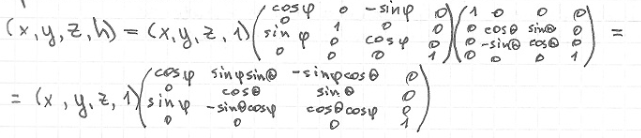 (x,y,z,h) = (x,y,z,1) (cosφ 0 -sinφ 0; 0 1 0 0; sinφ 0 cosφ 0; 0 0 0 1) (1 0 0 0; 0 cosθ sinθ 0; 0 -sinθ cosθ 0; 0 0 0 1) =
= (x,y,z,1) (cosφ sinφsinθ -sinφcosθ 0; 0 cosθ sinθ 0; sinφ -sinθcosφ cosθcosφ 0; 0 0 0 1)